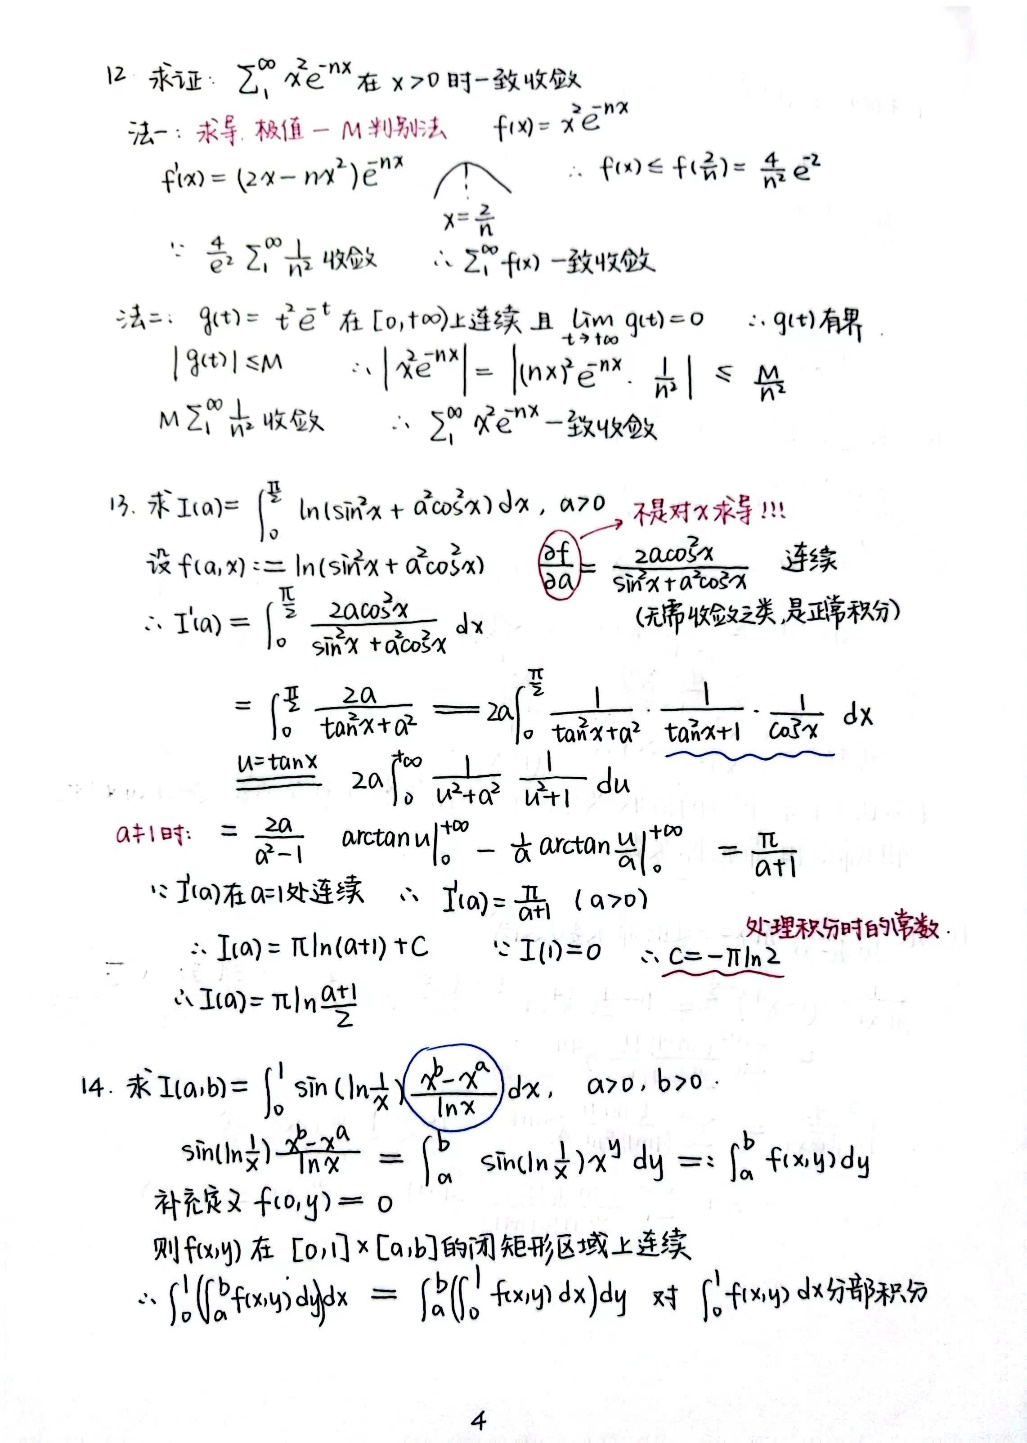 12. 求证: ∑₁^∞ x²e^{-nx} 在 x>0 时一致收敛
法一: 求导. 极值 — M判别法 f(x) = x²e^{-nx}
f'(x) = (2x - nx²)e^{-nx} ∴ f(x) ≤ f(2/n) = 4/n² e^{-2}
x = 2/n
∵ 4/e² ∑₁^∞ 1/n² 收敛 ∴ ∑₁^∞ f(x) 一致收敛
法二: g(t) = t²e^{-t} 在 [0,+∞)上连续 且 lim_{t→+∞} g(t) = 0 ∴ g(t)有界.
|g(t)| ≤ M ∴ |x²e^{-nx}| = |(nx)²e^{-nx} · 1/n²| ≤ M/n²
M∑₁^∞ 1/n² 收敛 ∴ ∑₁^∞ x²e^{-nx} 一致收敛
13. 求 I(a) = ∫₀^{π/2} ln(sin²x + a²cos²x) dx, a>0 不是对x求导!!!
设 f(a,x) := ln(sin²x + a²cos²x) ∂f/∂a = 2acos²x/(sin²x + a²cos²x) 连续
(无需收敛之类,是正常积分)
∴ I'(a) = ∫₀^{π/2} 2acos²x/(sin²x + a²cos²x) dx
= ∫₀^{π/2} 2a/(tan²x + a²) = 2a∫₀^{π/2} 1/(tan²x + a²) · 1/(tan²x + 1) · 1/cos²x dx
u=tanx 2a∫₀^{+∞} 1/(u²+a²) 1/(u²+1) du
a≠1时: = 2a/(a²-1) arctan u|₀^{+∞} - 1/a arctan u/a|₀^{+∞} = π/(a+1)
∵ I'(a)在a=1处连续 ∴ I'(a) = π/(a+1) (a>0)
处理积分时的常数.
∴ I(a) = πln(a+1) + C ∵ I(1)=0 ∴ C = -πln2
∴ I(a) = πln (a+1)/2
14. 求 I(a,b) = ∫₀¹ sin(ln 1/x) (x^b - x^a)/ln x dx, a>0, b>0.
sin(ln 1/x) (x^b - x^a)/ln x = ∫ₐ^b sin(ln 1/x) x^y dy =: ∫ₐ^b f(x,y)dy
补充定义 f(0,y) = 0
则f(x,y) 在 [0,1]×[a,b]的闭矩形区域上连续
∴ ∫₀¹(∫ₐ^b f(x,y)dy)dx = ∫ₐ^b(∫₀¹ f(x,y)dx)dy 对 ∫₀¹ f(x,y)dx分部积分
4